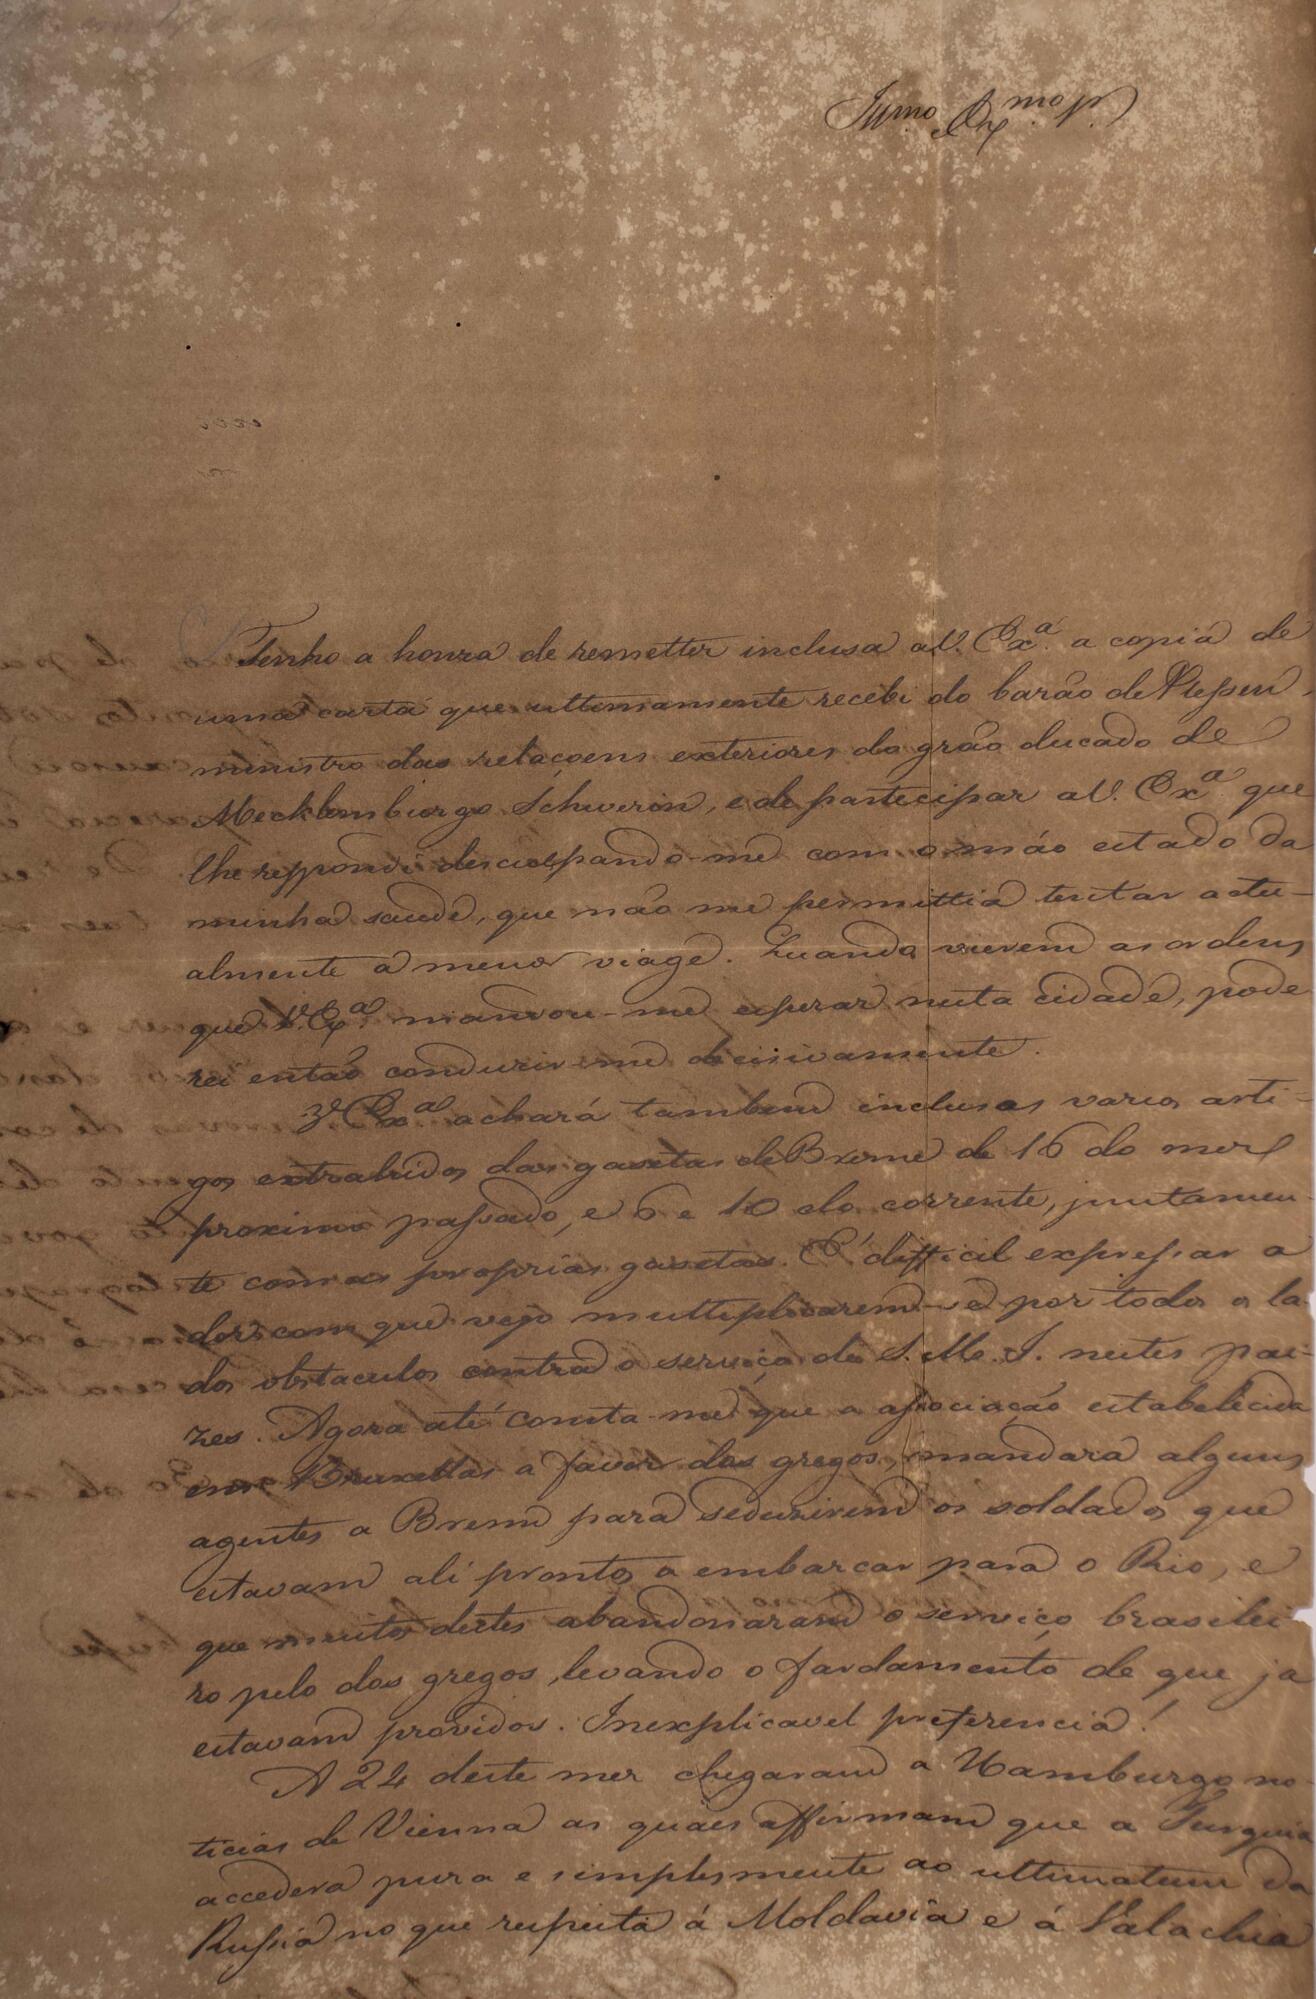 Illmo. Exmo. Sr.
Tenho a honra de remetter inclusa a V. Exª. a copia de
uma carta que ultimamente recebi do barão de Plessen,
ministro das relaçoens exteriores do grão ducado de
Mecklemburgo Schwerin, e de participar a V. Exª. que
lhe respondi desculpando-me com o máo estado da
minha saude, que não me permittia tentar actu-
almente a menor viage. Quando vierem as ordens
que V. Exª. mandou-me esperar nesta cidade, pode
rei então conduzir-me decisivamente.
V. Exª. achará tambem inclusos varios arti-
gos extrahidos das gasetas de Breme de 16 do mez
proximo passado, e 6 e 10 do corrente, juntamen
te com as proprias gasetas. E' difficil expressar a
dor com que vejo multiplicarem-se por todos os la
dos obstaculos contra o serviço de S. M. I. nestes pai-
zes. Agora até consta-me que a associação estabelecida
em Bruxellas a favor dos gregos, mandara alguns
agentes a Brem para seduzirem os soldados que
estavam ali prontos a embarcar para o Rio, e
que muitos destes abandonaram o serviço brasilei
ro pelo dos gregos, levando o fardamento de que ja
estavam providos. Inexplicavel preferencia!
A 24 deste mez chegaram a Hamburgo no-
ticias de Vienna as quaes affirmam que a Turquia
accedera pura e simplesmente ao ultimatum da
Russia no que respeita á Moldavia e á Valachia